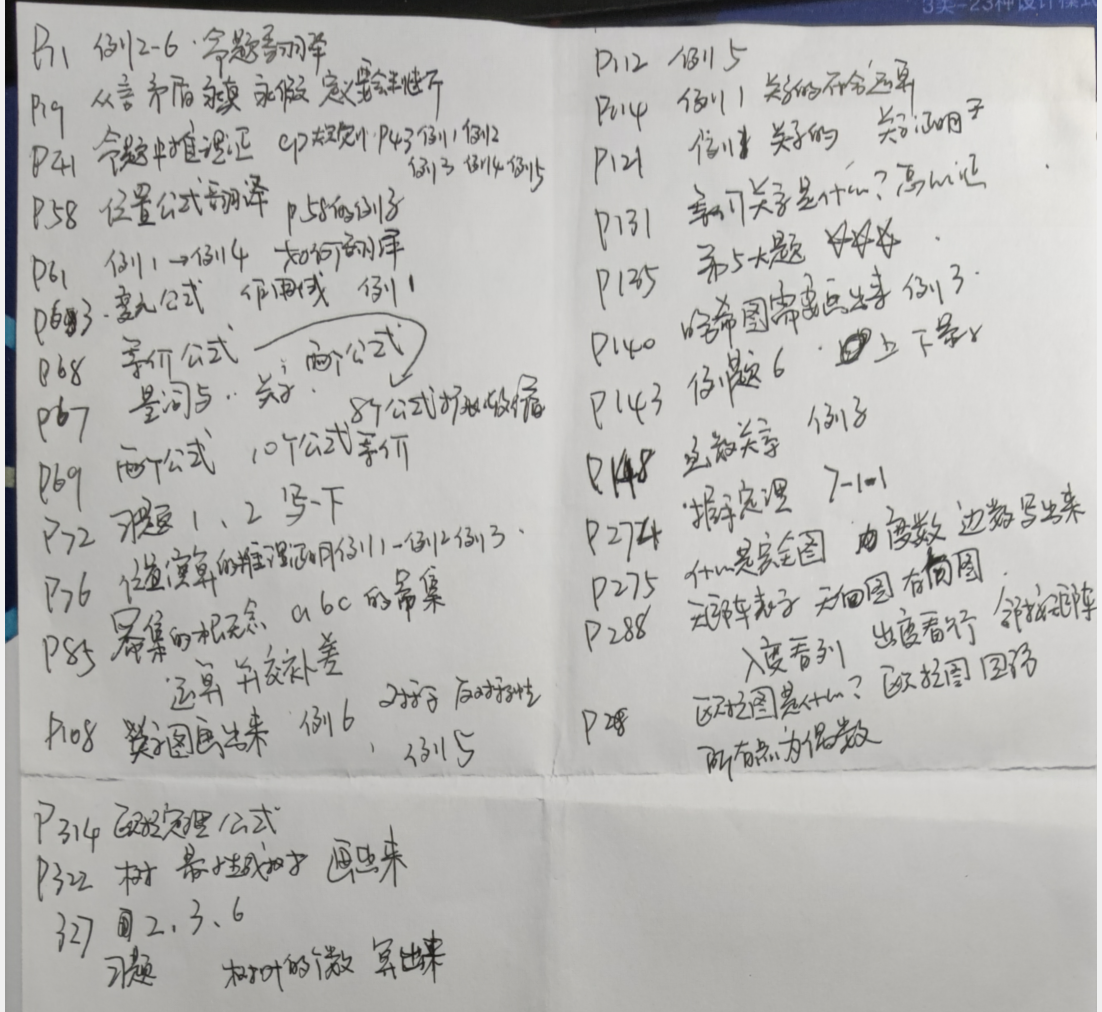 3类-23种设计模式
P11 例2-6 · 命题翻译
P19 矛盾 永真 永假 定义要会判断
P41 命题中推理证 cp规则 · P43例1 例2
例3 例4 例5
P58 位置公式翻译 P58的例3
P61 例1→例4 如何翻译
P63 · 变元公式 作用域 例1
P68 等价公式
P67 量词与 · · 关系 两个公式
8个公式扩张收缩
P69 两个公式 10个公式等价
P72 习题1、2 写一下
P76 位置演算的推理证明例1-例2例3 ·
P85 幂集的概念 abc的幂集
运算 并交补差
P108 关系图画出来 例6 对称 反对称性
例5
P112 例5
P114 例1 关系的复合运算
P121 例1 关系的 关系证明
P131 等价关系是什么?
P135 第5大题 ☆☆☆
P140 哈希图需要画出来 例3 ·
P143 例题6 · 上下界
P148 函数关系 例3
P274 握手定理 7-1-1
P275 什么是完全图 度数 边数写出来
P288 矩阵表示 无向图 有向图
入度看列 出度看行 邻接矩阵
P28 欧拉图是什么? 欧拉图 回路
所有点为偶数
P314 欧拉定理/公式
P322 树 最小生成树 画出来
327 2、3、6
习题 树叶的个数 算出来